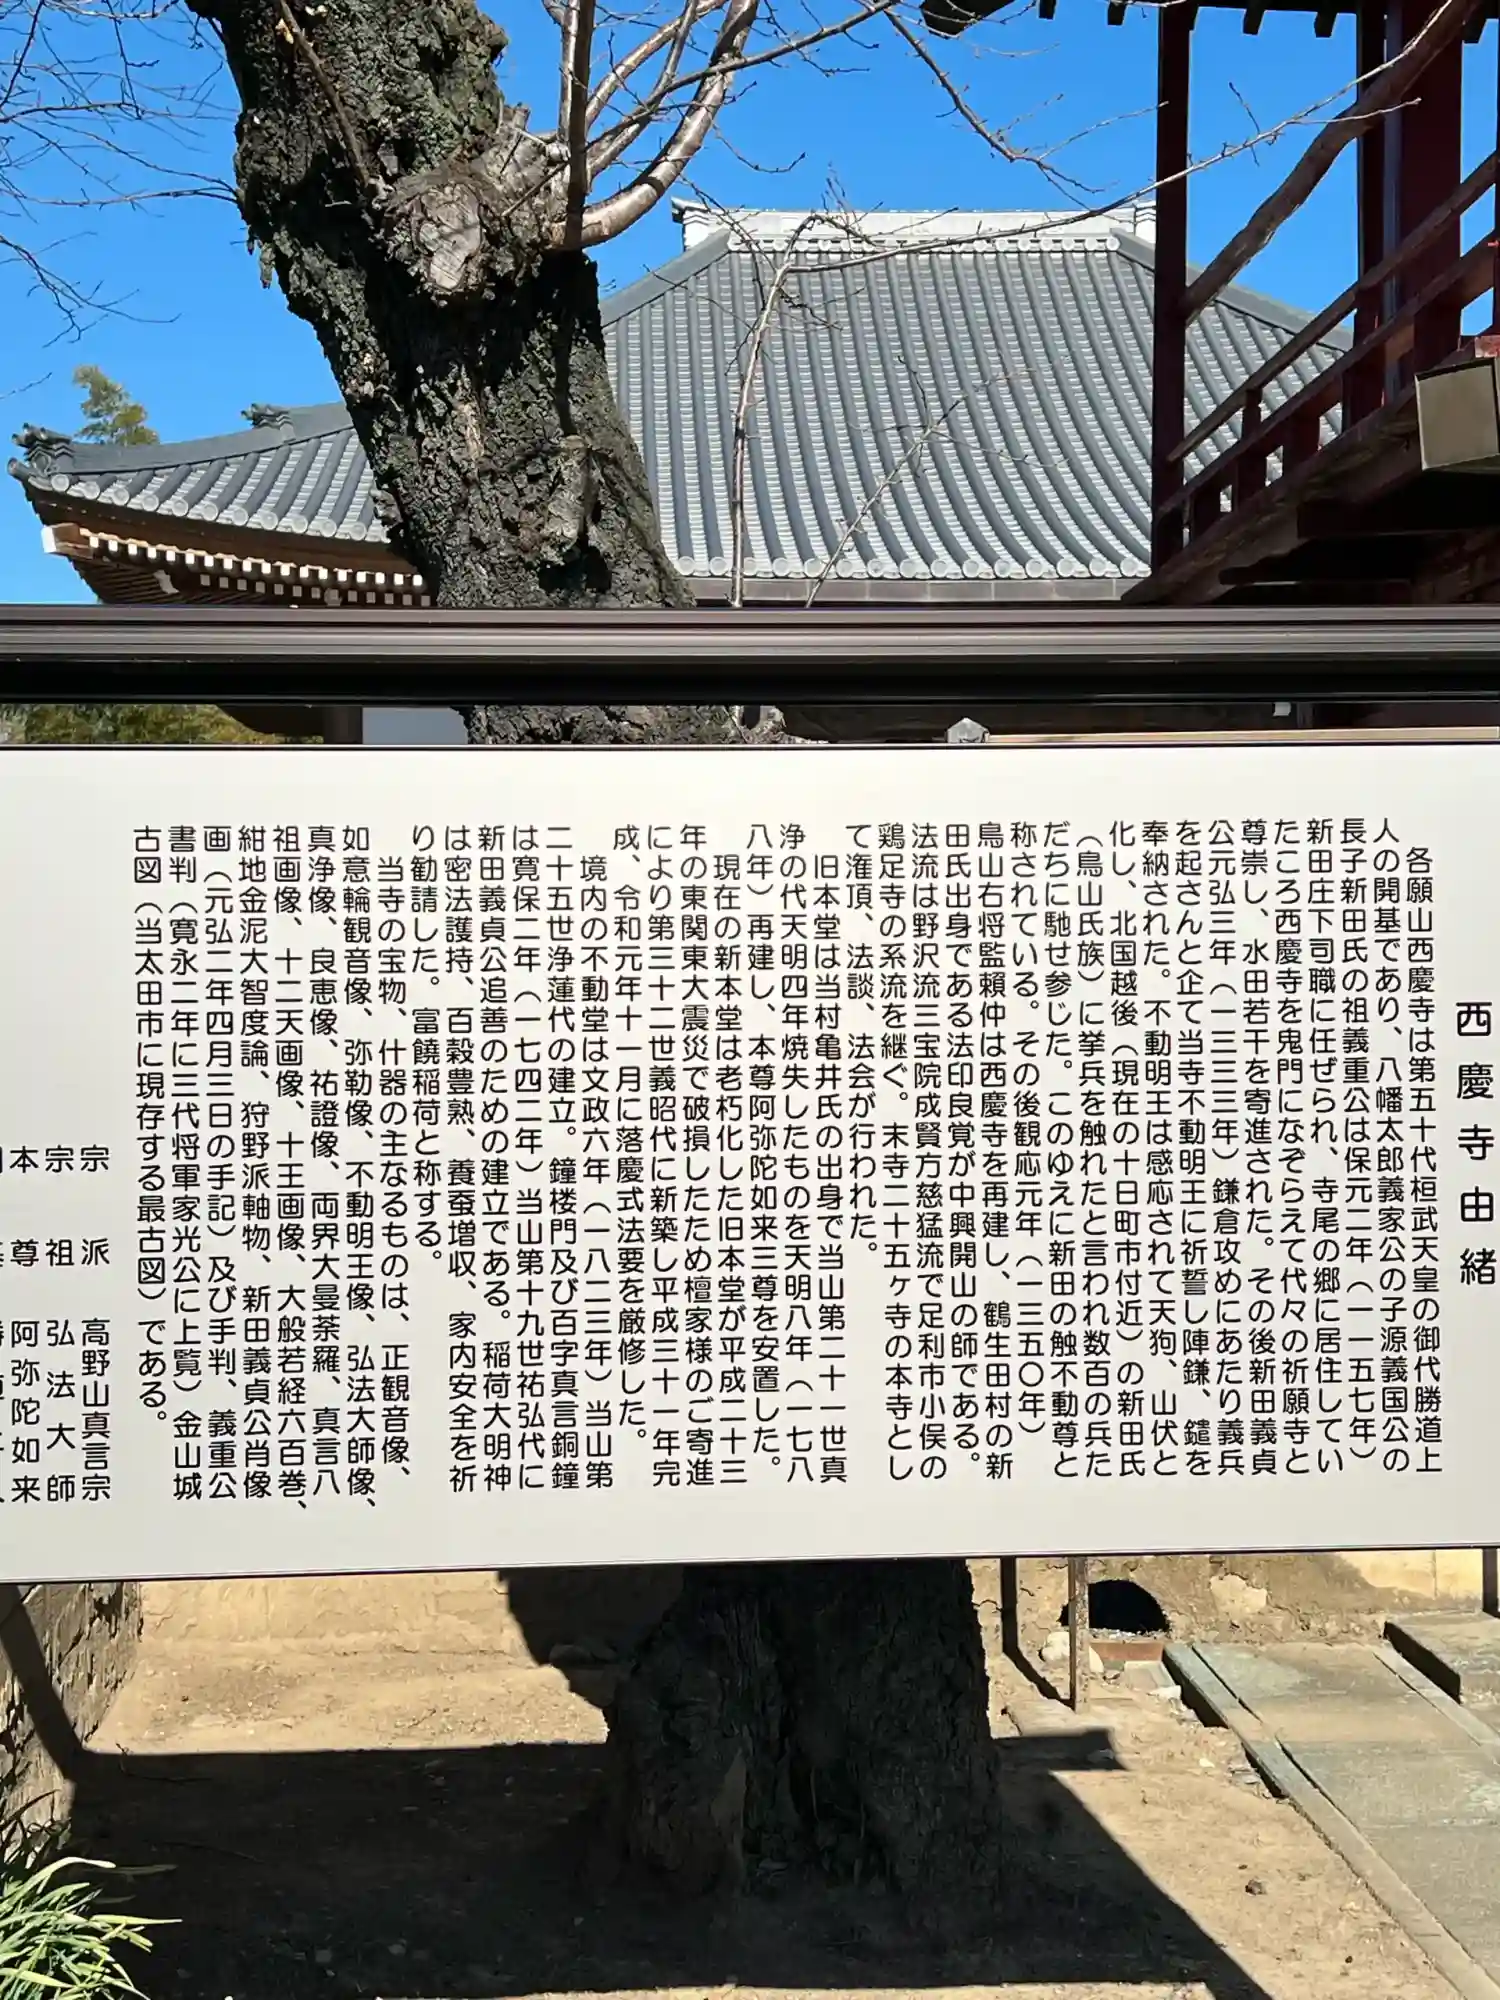 西慶寺由緒
各願山西慶寺は第五十代桓武天皇の御代勝道上
人の開基であり、八幡太郎義家公の子源義国公の
長子新田氏の祖義重公は保元二年（一一五七年）
新田庄下司職に任ぜられ、寺尾の郷に居住してい
たころ西慶寺を鬼門になぞらえて代々の祈願寺と
尊崇し、水田若干を寄進された。その後新田義貞
公元弘三年（一三三三年）鎌倉攻めにあたり義兵
を起さんと企て当寺不動明王に祈誓し陣鎌、鑓を
奉納された。不動明王は感応されて天狗、山伏と
化し、北国越後（現在の十日町市付近）の新田氏
（鳥山氏族）に挙兵を触れたと言われ数百の兵た
だちに馳せ参じた。このゆえに新田の触不動尊と
称されている。その後観応元年（一三五〇年）
鳥山右将監頼仲は西慶寺を再建し、鶴生田村の新
田氏出身である法印良覚が中興開山の師である。
法流は野沢流三宝院成賢方慈猛流で足利市小俣の
鶏足寺の系流を継ぐ。末寺二十五ヶ寺の本寺とし
て潅頂、法談、法会が行われた。
旧本堂は当村亀井氏の出身で当山第二十一世真
浄の代天明四年焼失したものを天明八年（一七八
八年）再建し、本尊阿弥陀如来三尊を安置した。
現在の新本堂は老朽化した旧本堂が平成二十三
年の東関東大震災で破損したため檀家様のご寄進
により第三十二世義昭代に新築し平成三十一年完
成、令和元年十一月に落慶式法要を厳修した。
境内の不動堂は文政六年（一八二三年）当山第
二十五世浄蓮代の建立。鐘楼門及び百字真言銅鐘
は寛保二年（一七四二年）当山第十九世祐弘代に
新田義貞公追善のための建立である。稲荷大明神
は密法護持、百穀豊熟、養蚕増収、家内安全を祈
り勧請した。富饒稲荷と称する。
当寺の宝物、什器の主なるものは、正観音像、
如意輪観音像、弥勒像、不動明王像、弘法大師像、
真浄像、良恵像、祐證像、両界大曼荼羅、真言八
祖画像、十二天画像、十王画像、大般若経六百巻、
紺地金泥大智度論、狩野派軸物、新田義貞公肖像
画（元弘二年四月三日の手記）及び手判、義重公
書判（寛永二年に三代将軍家光公に上覧）金山城
古図（当太田市に現存する最古図）である。
宗　派　高野山真言宗
宗　祖　弘法大師
本　尊　阿弥陀如来